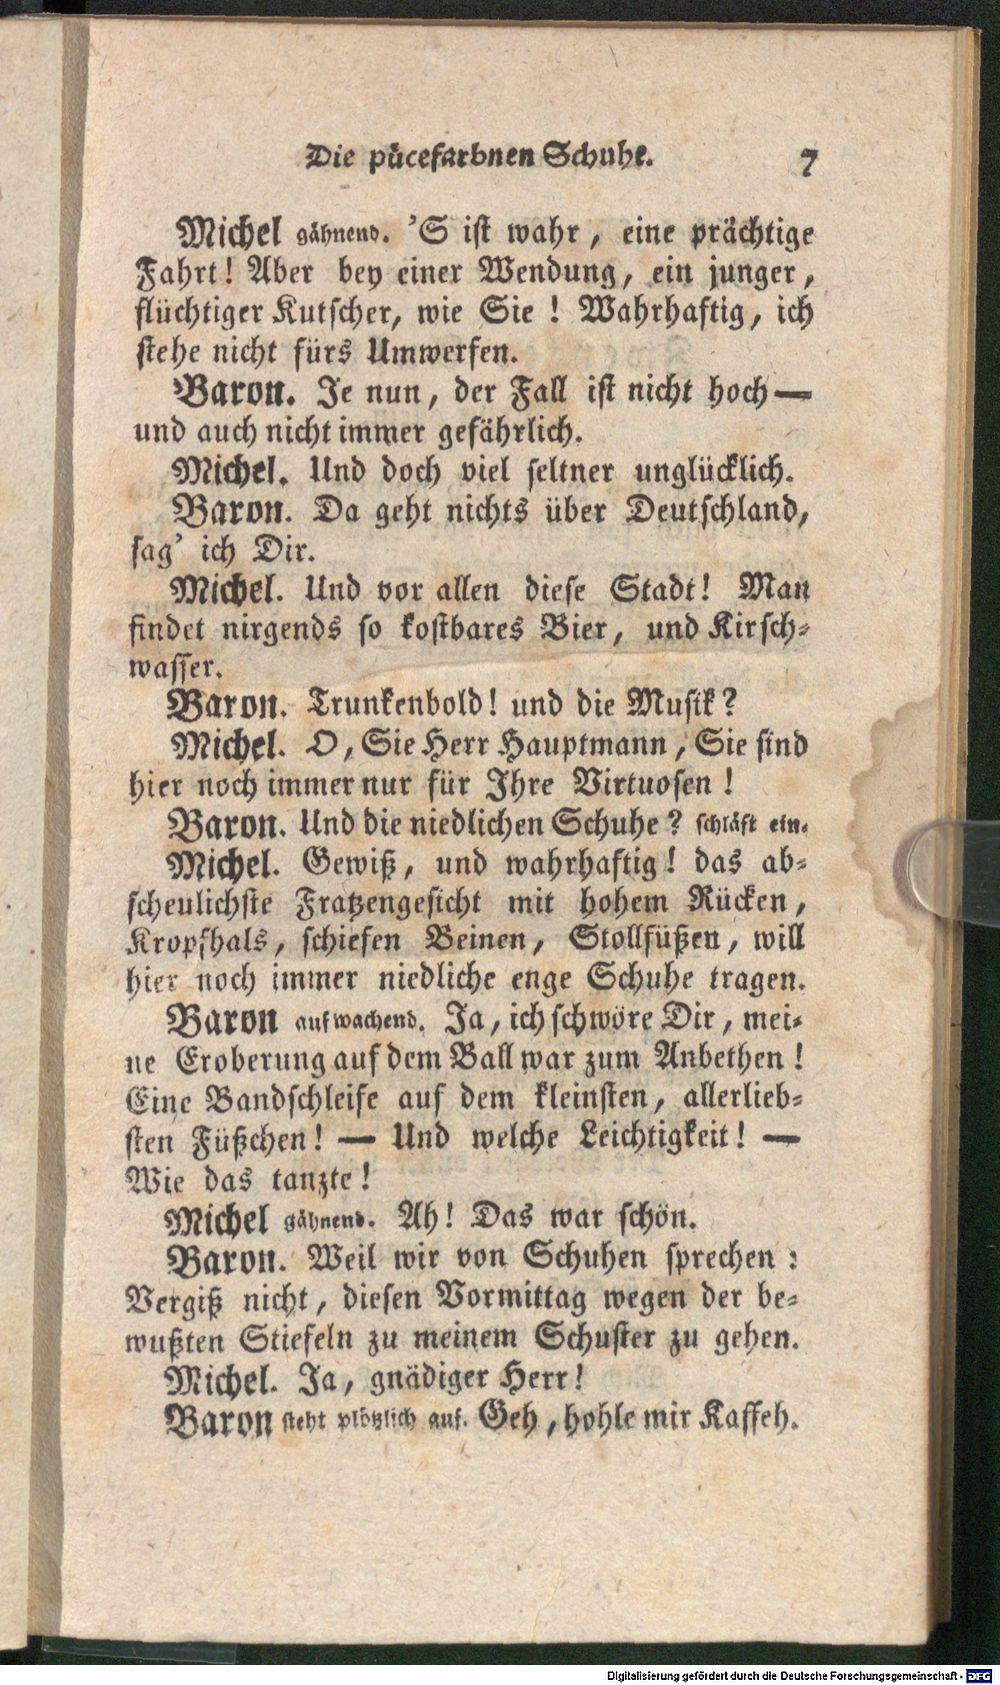 Die pücefarbnen Schuhe. 7
Michel gähnend. 'S ist wahr, eine prächtige
Fahrt! Aber bey einer Wendung, ein junger,
flüchtiger Kutscher, wie Sie! Wahrhaftig, ich
stehe nicht fürs Umwerfen.
Baron. Je nun, der Fall ist nicht hoch—
und auch nicht immer gefährlich.
Michel. Und doch viel seltner unglücklich.
Baron. Da geht nichts über Deutschland,
sag' ich Dir.
Michel. Und vor allen diese Stadt! Man
findet nirgends so kostbares Bier, und Kirsch-
wasser.
Baron. Trunkenbold! und die Musik?
Michel. O, Sie Herr Hauptmann, Sie sind
hier noch immer nur für Ihre Virtuosen!
Baron. Und die niedlichen Schuhe? schläft ein.
Michel. Gewiß, und wahrhaftig! das ab-
scheulichste Fratzengesicht mit hohem Rücken,
Kropfhals, schiefen Beinen, Stollfüßen, will
hier noch immer niedliche enge Schuhe tragen.
Baron aufwachend. Ja, ich schwöre Dir, mei-
ne Eroberung auf dem Ball war zum Anbethen!
Eine Bandschleife auf dem kleinsten, allerlieb-
sten Füßchen! — Und welche Leichtigkeit! —
Wie das tanzte!
Michel gähnend. Ah! Das war schön.
Baron. Weil wir von Schuhen sprechen:
Vergiß nicht, diesen Vormittag wegen der be-
wußten Stiefeln zu meinem Schuster zu gehen.
Michel. Ja, gnädiger Herr!
Baron steht plötzlich auf. Geh, hohle mir Kaffeh.
Digitalisierung gefördert durch die Deutsche Forschungsgemeinschaft - DFG